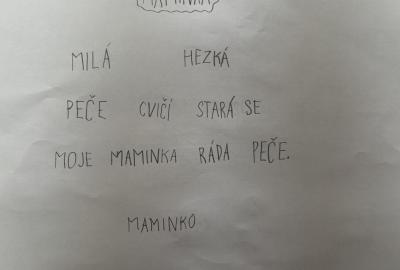 MAMINKA
MILÁ HEZKÁ
PEČE CVIČÍ STARÁ SE
MOJE MAMINKA RÁDA PEČE.
MAMINKO